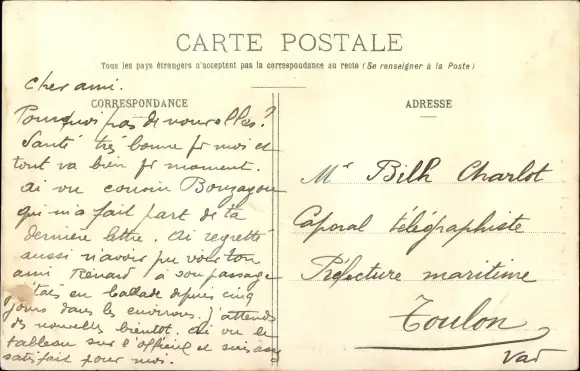 CARTE POSTALE
Tous les pays étrangers n'acceptent pas la correspondance au recto (Se renseigner à la Poste)
CORRESPONDANCE
Cher ami.
Pourquoi pas de nouvelles?
Santé très bonne pr moi et
tout va bien pr moment.
ai vu cousin Bouzagou
qui m'a fait part de ta
dernière lettre. Ai regretté
aussi n'avoir pu voir ton
ami Renard à son passage
étais en ballade depuis cinq
jours dans les environs. J'attends
des nouvelles bientôt. ai vu le
tableau sur l'officiel et suis
satisfait pour moi.
ADRESSE
Mr Bilh Charlot
Caporal télégraphiste
Préfecture maritime
Toulon
Var